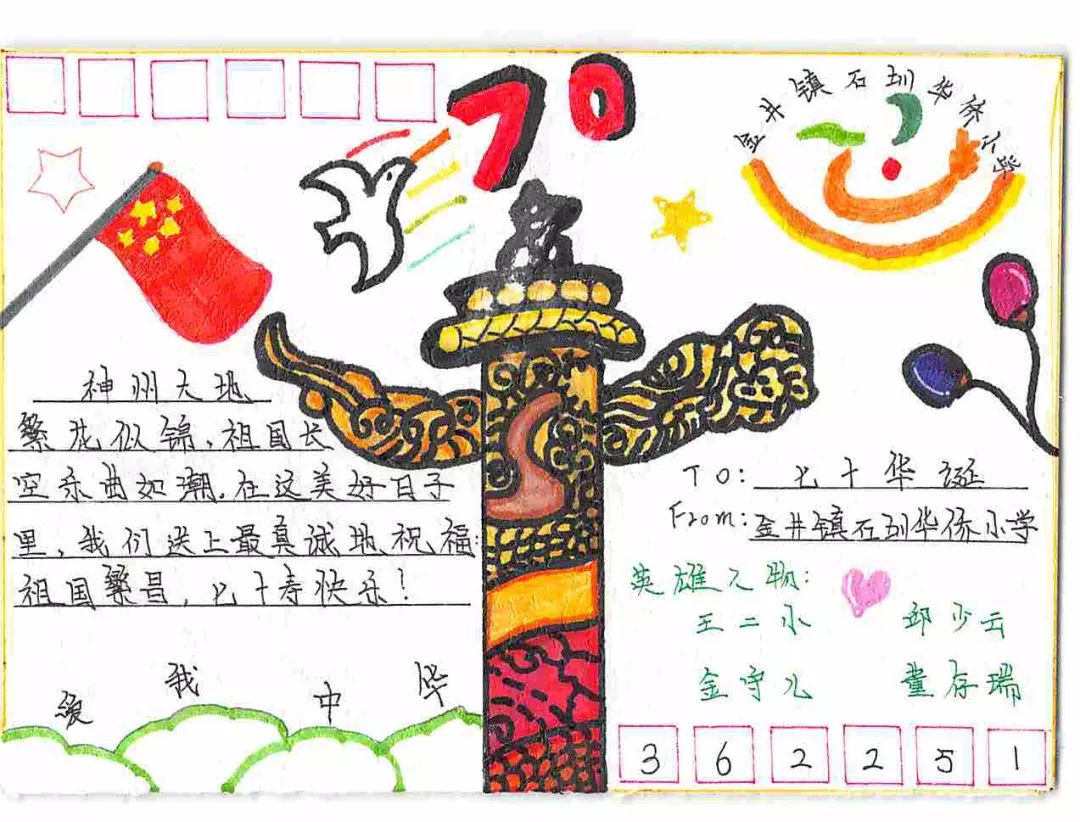 70
金井镇石圳华侨小学
神州大地
繁花似锦，祖国长
空乐曲如潮。在这美好日子
里，我们送上最真诚地祝福：
祖国繁昌，七十寿快乐！
TO：七十华诞
From：金井镇石圳华侨小学
英雄人物：
王二小 邱少云
金守儿 董存瑞
爱我中华
362251